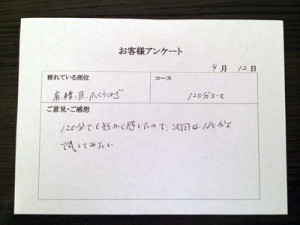 お客様アンケート
4月12日
疲れている部位
コース
肩、腰、目、ふくらはぎ
120分コース
ご意見・ご感想
120分でも短かく感じたので、次回は180分を
試してみたい